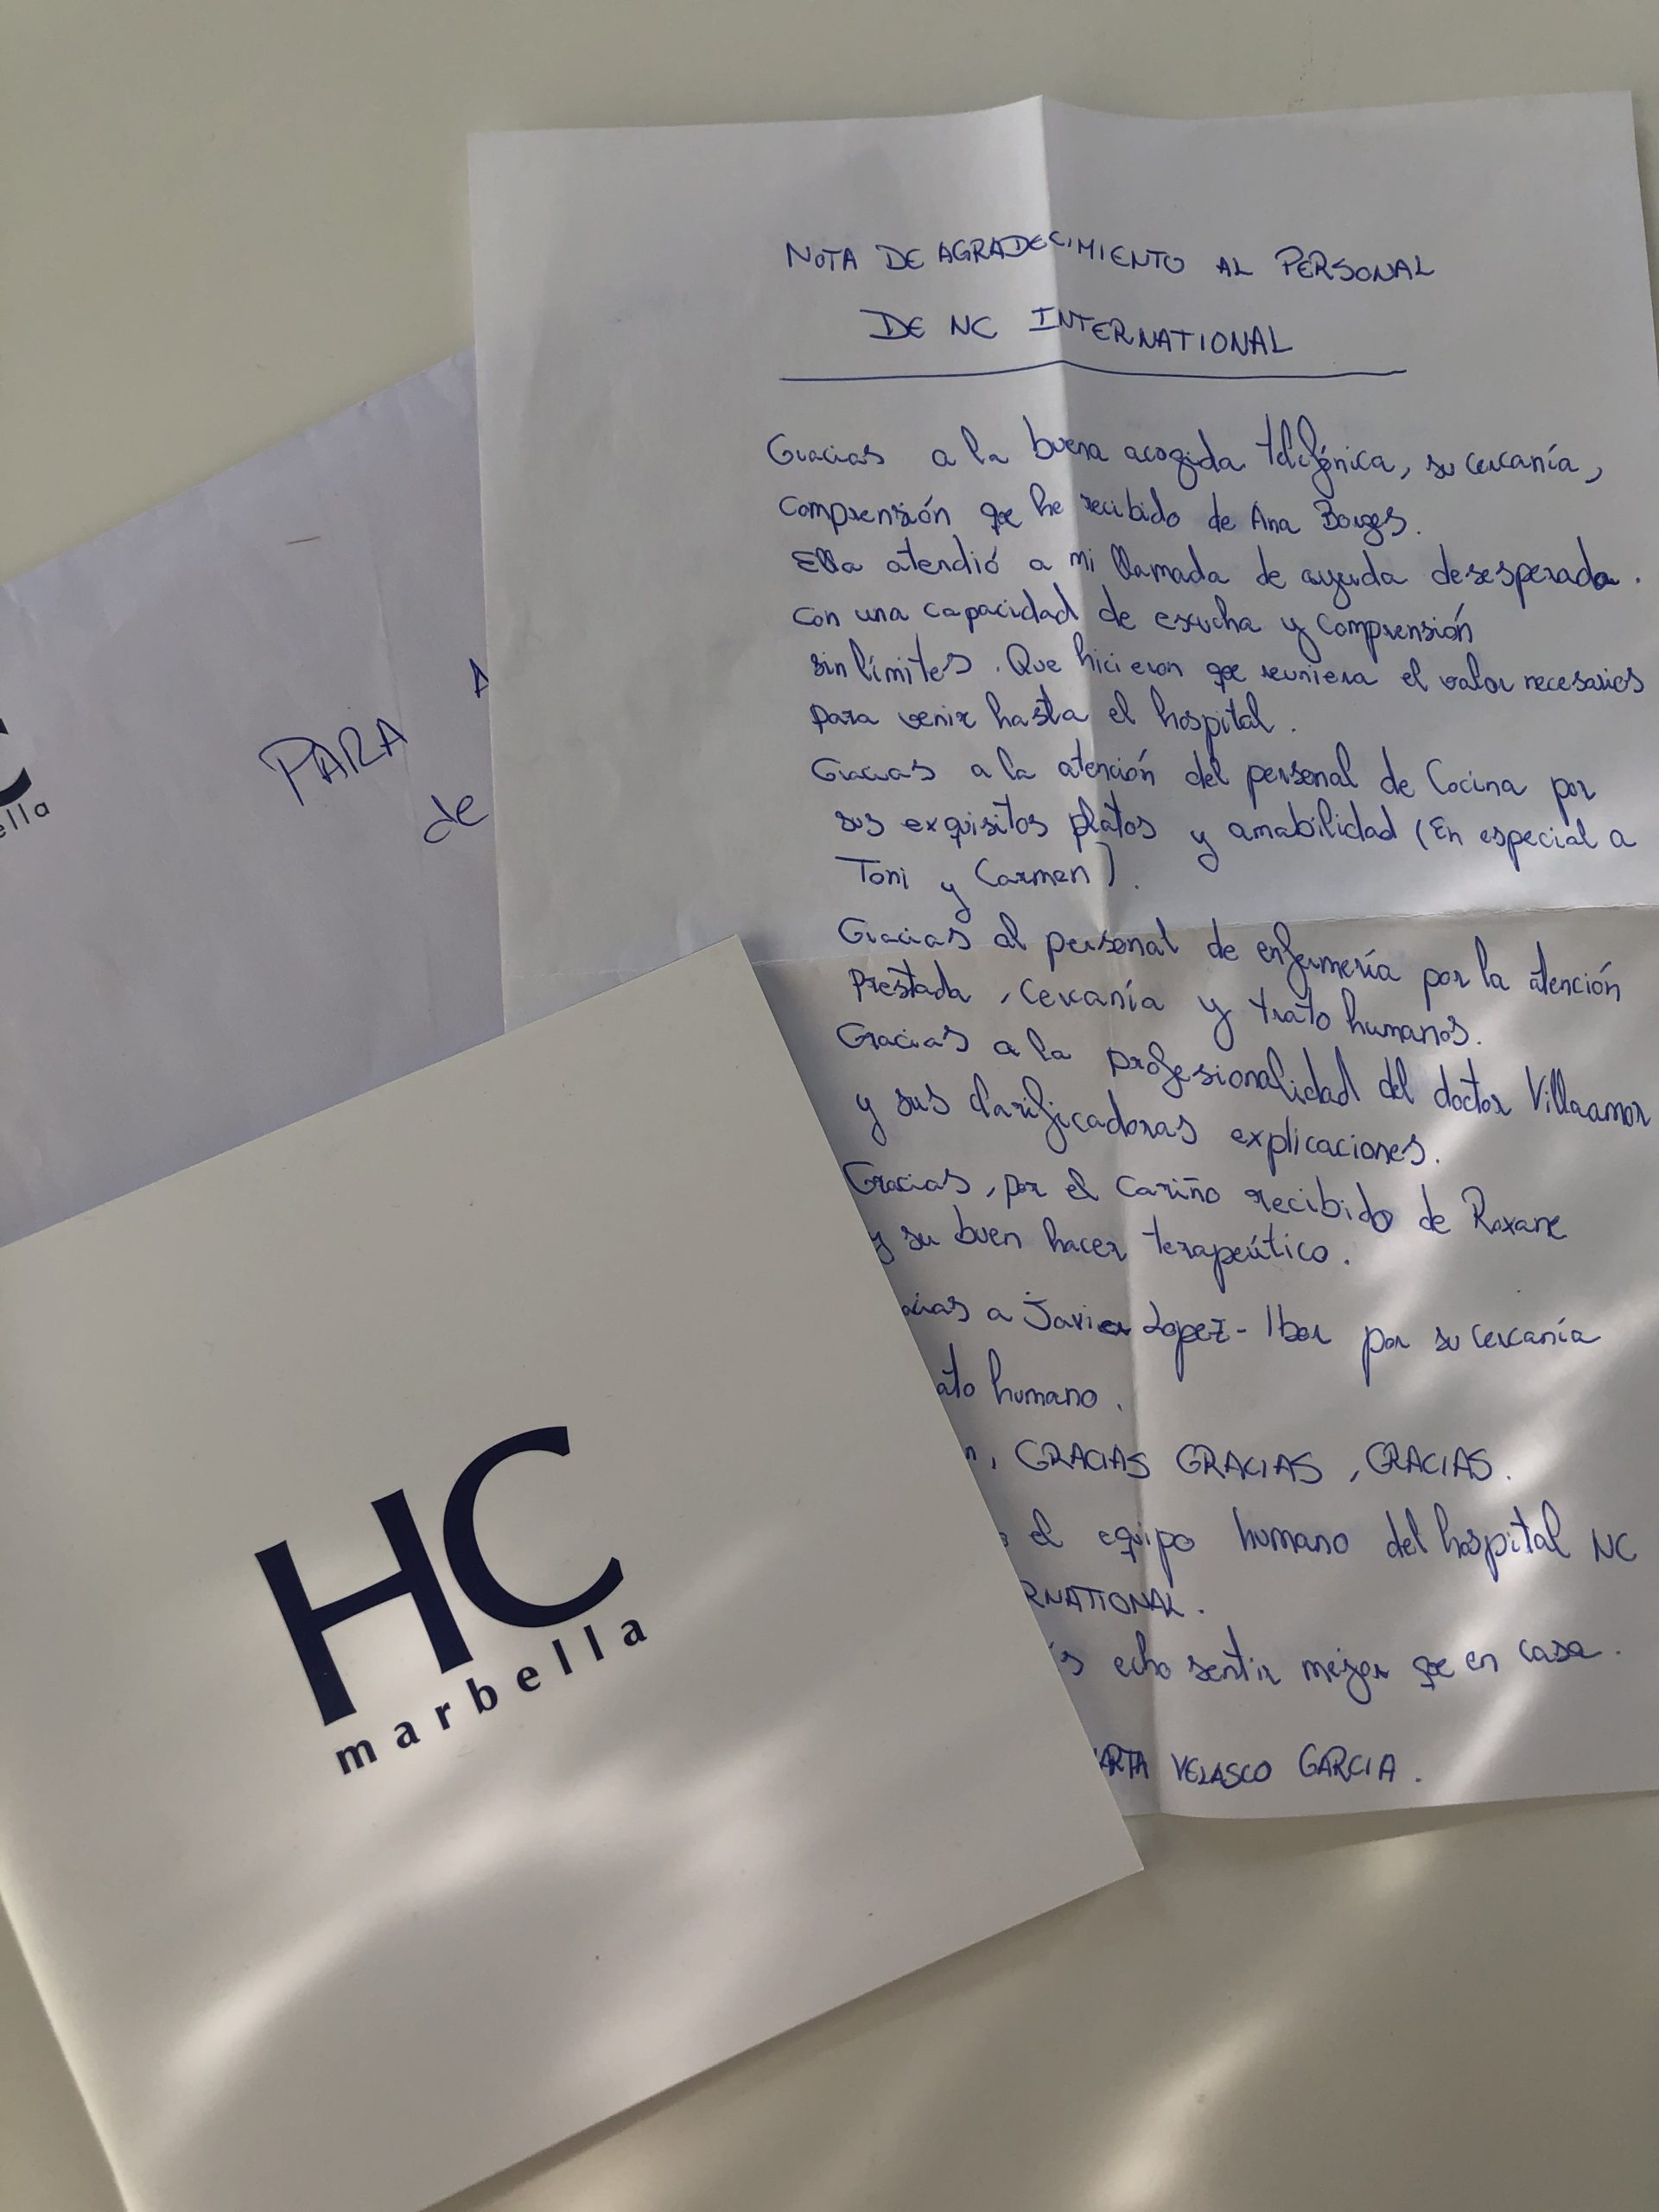 NOTA DE AGRADECIMIENTO AL PERSONAL
DE NC INTERNATIONAL
Gracias a la buena acogida telefónica, su cercanía,
comprensión qe he recibido de Ana Borges.
Ella atendió a mi llamada de ayuda desesperada.
con una capacidad de escucha y comprensión
sin límites. Que hicieron qe reuniera el valor necesarios
para venir hasta el hospital.
Gracias a la atención del personal de Cocina por
sus exquisitos platos y amabilidad (En especial a
Toni y Carmen).
Gracias al personal de enfermería por la atención
Prestada, cercanía y trato humanos.
Gracias a la profesionalidad del doctor Villaamor
y sus clarificadoras explicaciones.
Gracias, por el cariño recibido de Roxane
y su buen hacer terapeútico.
acias a Javier Lopez-Ibor por su cercanía
ato humano.
n, GRACIAS GRACIAS, GRACIAS.
o el equipo humano del hospital NC
RNATIONAL.
is echo sentir mejor qe en casa.
ARTA VELASCO GARCIA.
PARA A
de
C
ella
HC
marbella